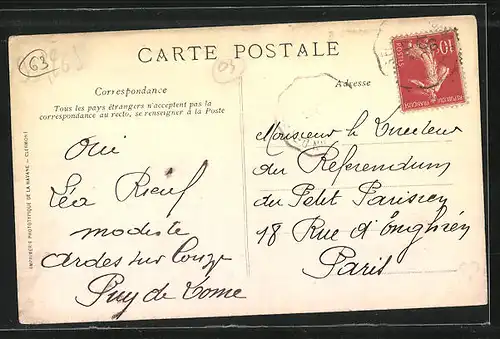 63
CARTE POSTALE
Correspondance
Tous les pays étrangers n'acceptent pas la
correspondance au recto, se renseigner à la Poste
Adresse
10c
POSTES
REPUBLIQUE FRANÇAISE
IMPRIMERIE PHOTOTYPIQUE DE LA MAYADE - CLERMONT
Oui
Léa Rieuf
modiste
Ardes sur Couze
Puy de Dome
Monsieur le Directeur
du Referendum
du Petit Parisien
18 Rue d'Enghien
Paris